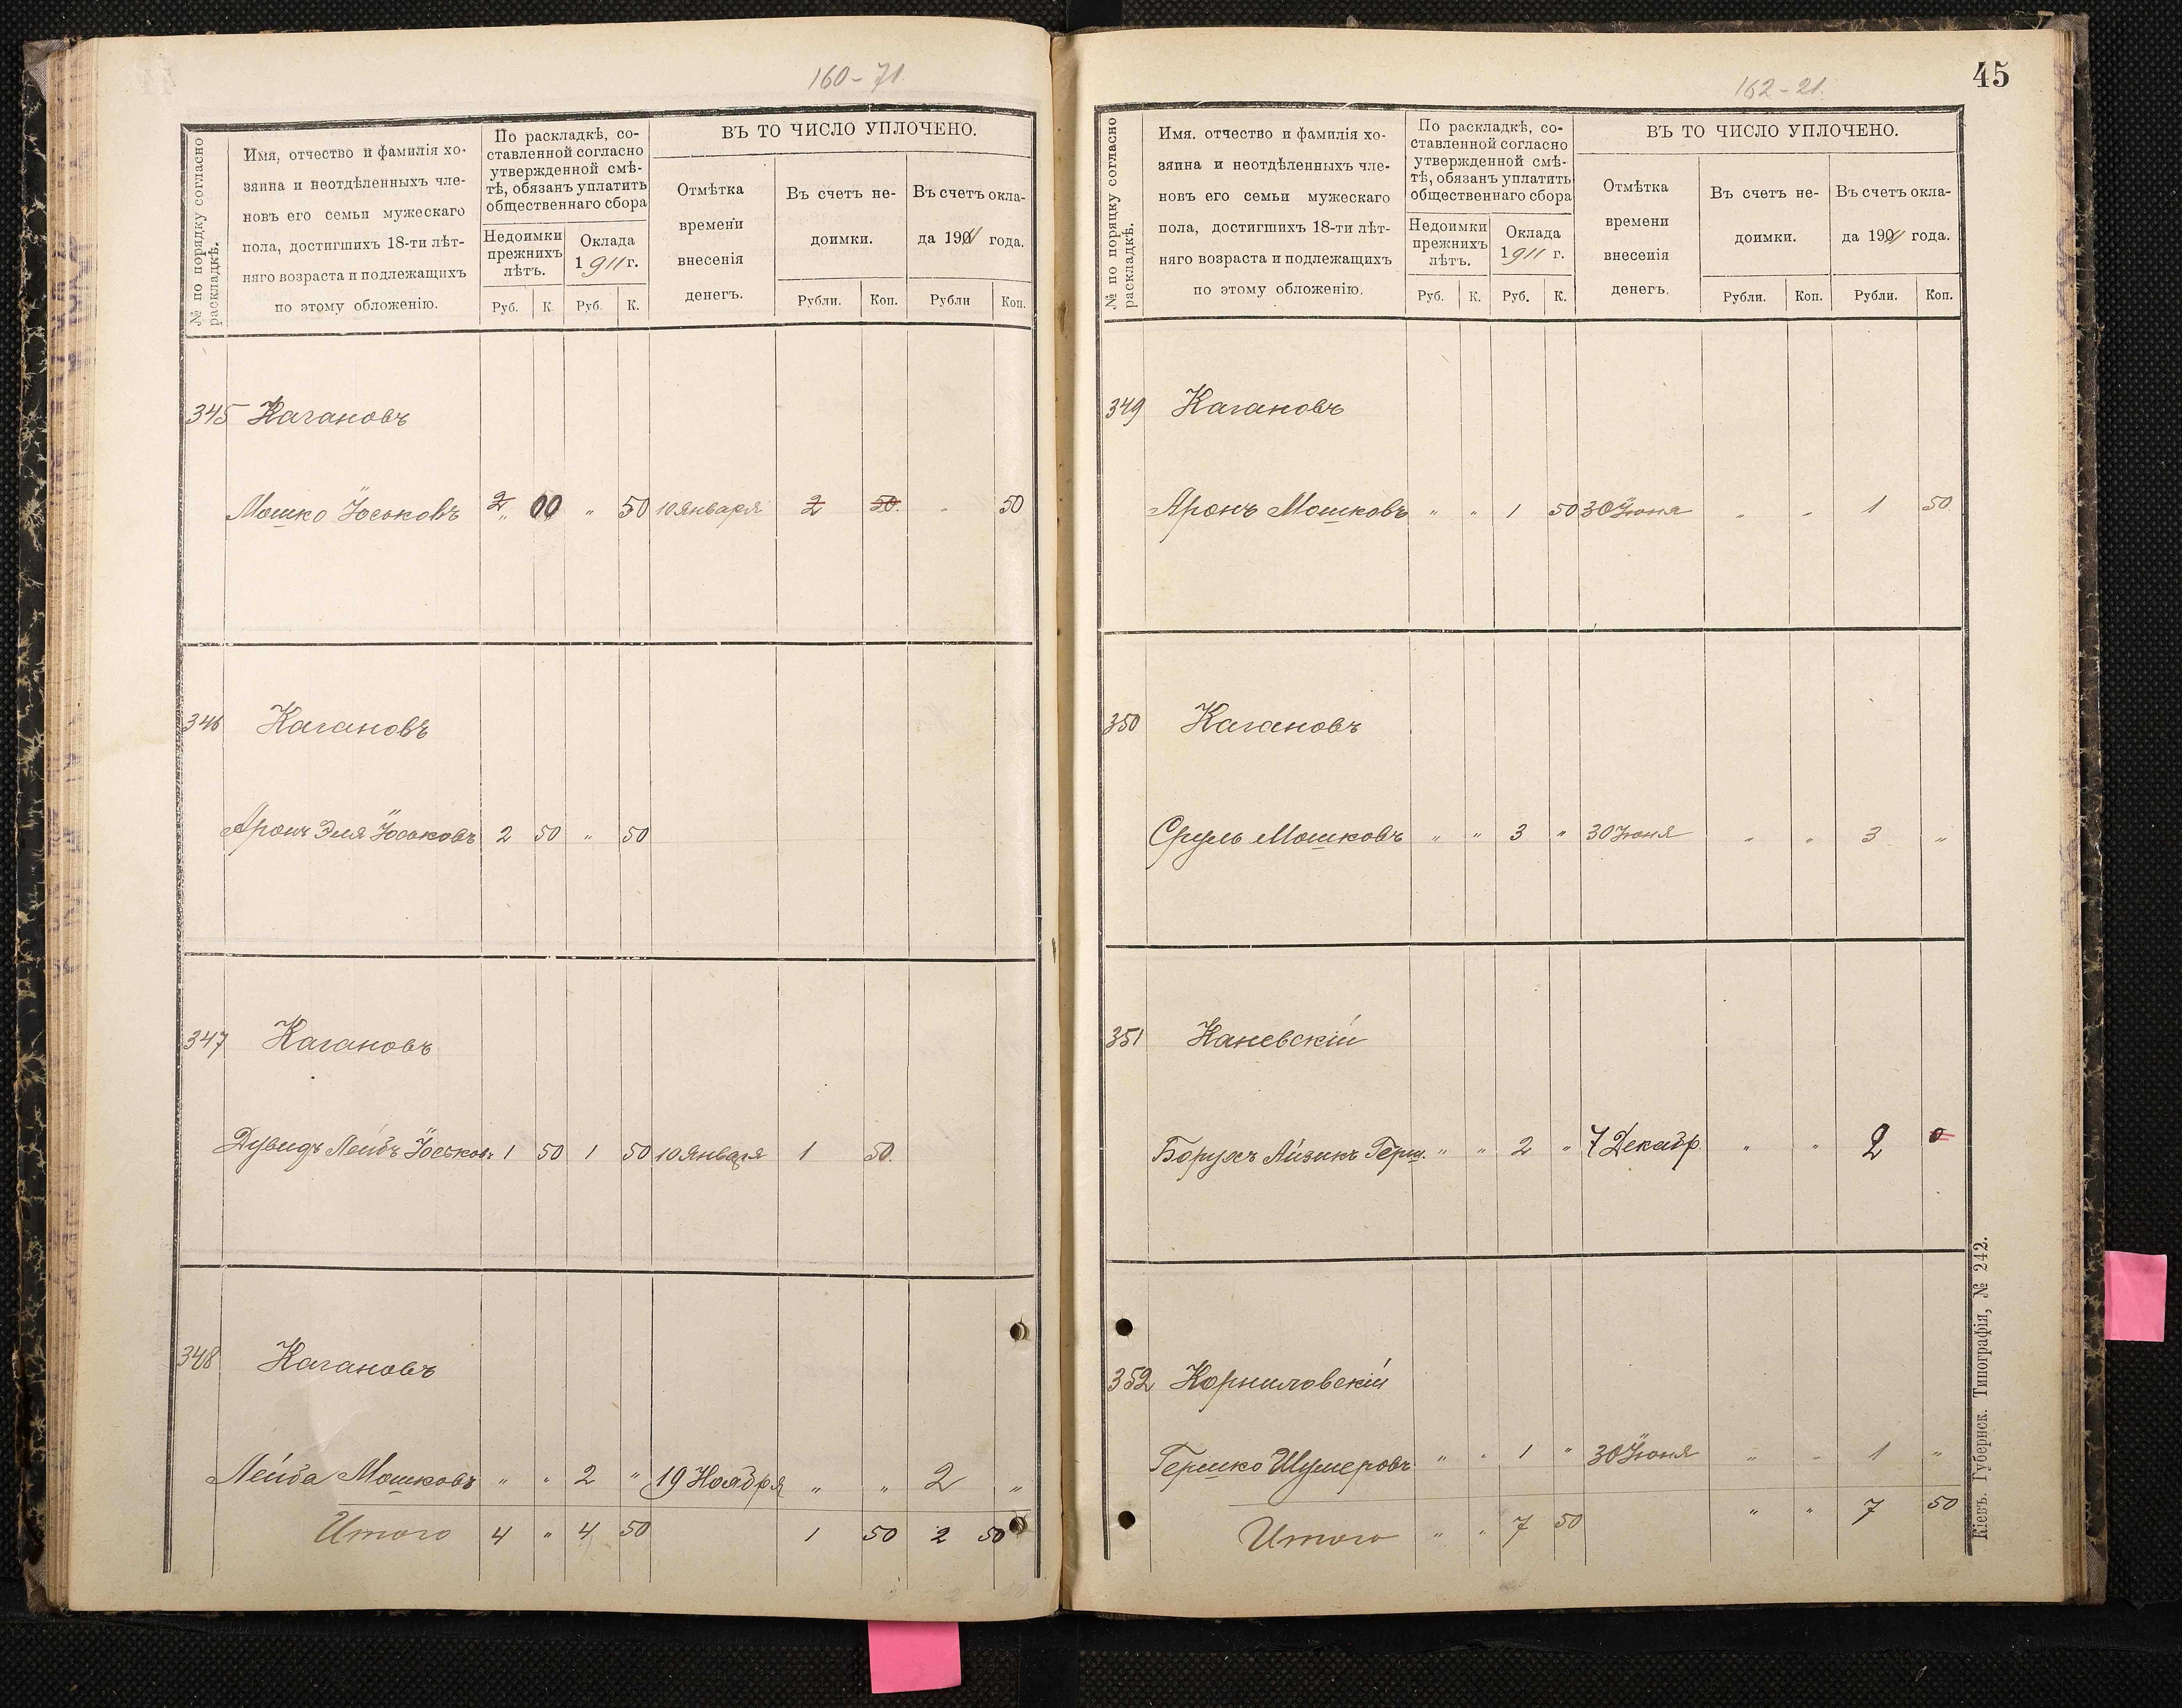 160-71.
№ по порядку согласно раскладкѣ.
Имя, отчество и фамилія хо-
зяина и неотдѣленныхъ чле-
новъ его семьи мужескаго
пола, достигшихъ 18-ти лѣт-
няго возраста и подлежащихъ
по этому обложенію.
По раскладкѣ, со-
ставленной согласно
утвержденной смѣ-
тѣ, обязанъ уплатить
общественнаго сбора
Недоимки
прежнихъ
лѣтъ.
Оклада
1911 г.
Руб. К. Руб. К.
ВЪ ТО ЧИСЛО УПЛОЧЕНО.
Отмѣтка
времени
внесенія
денегъ.
Въ счетъ не-
доимки.
Въ счетъ окла-
да 1911 года.
Рубли. Коп. Рубли Коп.
345 Кагановъ
Мошко Іоськовъ 2 00 " 50 10 Января 2 50. " 50
346 Кагановъ
Аронъ Эля Іоськовъ 2 50 " 50
347 Кагановъ
Дувидъ Лейбъ Іоськов: 1 50 1 50 10 Января 1 50.
348 Кагановъ
Лейба Мошковъ " " 2 " 19 Ноября " " 2 "
Итого 4 " 4 50 1 50 2 50
162-21.
45
№ по порядку согласно раскладкѣ.
Имя. отчество и фамилія хо-
зяина и неотдѣленныхъ чле-
новъ его семьи мужескаго
пола, достигшихъ 18-ти лѣт-
няго возраста и подлежащихъ
по этому обложенію.
По раскладкѣ, со-
ставленной согласно
утвержденной смѣ-
тѣ, обязанъ уплатить
общественнаго сбора
Недоимки
прежнихъ
лѣтъ.
Оклада
1911 г.
Руб. К. Руб. К.
ВЪ ТО ЧИСЛО УПЛОЧЕНО.
Отмѣтка
времени
внесенія
денегъ.
Въ счетъ не-
доимки.
Въ счетъ окла-
да 1911 года.
Рубли. Коп. Рубли. Коп.
349 Кагановъ
Аронъ Мошковъ " " 1 50 30 Іюня " " 1 50.
350 Кагановъ
Сруль Мошковъ " " 3 " 30 Іюня " " 3 "
351 Каневскій
Борухъ Айзикъ Герш. " " 2 " 7 Декабр. " " 2 0
352 Корниловскій
Гершко Шумеровъ " " 1 " 30 Іюня " " 1 "
Итого " " 7 50 " " 7 50
Кіевъ. Губернск. Типографія, № 242.